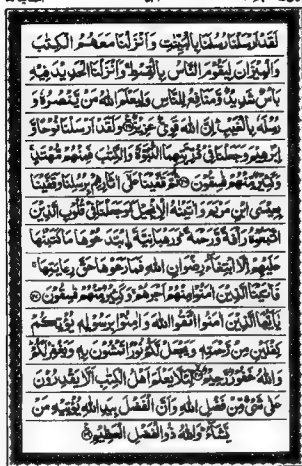 لَقَدْ اَرْسَلْنَا رُسُلَنَا بِالْبَيِّنٰتِ وَاَنْزَلْنَا مَعَهُمُ الْكِتٰبَ
وَالْمِيْزَانَ لِيَقُوْمَ النَّاسُ بِالْقِسْطِ وَاَنْزَلْنَا الْحَدِيْدَ فِيْهِ
بَاْسٌ شَدِيْدٌ وَّمَنَافِعُ لِلنَّاسِ وَلِيَعْلَمَ اللّٰهُ مَنْ يَّنْصُرُهٗ وَ
رُسُلَهٗ بِالْغَيْبِ اِنَّ اللّٰهَ قَوِيٌّ عَزِيْزٌ ۝ وَلَقَدْ اَرْسَلْنَا نُوْحًا وَّ
اِبْرٰهِيْمَ وَجَعَلْنَا فِيْ ذُرِّيَّتِهِمَا النُّبُوَّةَ وَالْكِتٰبَ فَمِنْهُمْ مُّهْتَدٍ
وَكَثِيْرٌ مِّنْهُمْ فٰسِقُوْنَ ۝ ثُمَّ قَفَّيْنَا عَلٰى اٰثَارِهِمْ بِرُسُلِنَا وَقَفَّيْنَا
بِعِيْسَى ابْنِ مَرْيَمَ وَاٰتَيْنٰهُ الْاِنْجِيْلَ وَجَعَلْنَا فِيْ قُلُوْبِ الَّذِيْنَ
اتَّبَعُوْهُ رَاْفَةً وَّرَحْمَةً وَرَهْبَانِيَّةَ ابْتَدَعُوْهَا مَا كَتَبْنٰهَا
عَلَيْهِمْ اِلَّا ابْتِغَآءَ رِضْوَانِ اللّٰهِ فَمَا رَعَوْهَا حَقَّ رِعَايَتِهَا
فَاٰتَيْنَا الَّذِيْنَ اٰمَنُوْا مِنْهُمْ اَجْرَهُمْ وَكَثِيْرٌ مِّنْهُمْ فٰسِقُوْنَ ۝
يٰٓاَيُّهَا الَّذِيْنَ اٰمَنُوا اتَّقُوا اللّٰهَ وَاٰمِنُوْا بِرَسُوْلِهٖ يُؤْتِكُمْ
كِفْلَيْنِ مِنْ رَّحْمَتِهٖ وَيَجْعَلْ لَّكُمْ نُوْرًا تَمْشُوْنَ بِهٖ وَيَغْفِرْ لَكُمْ
وَاللّٰهُ غَفُوْرٌ رَّحِيْمٌ ۝ لِّئَلَّا يَعْلَمَ اَهْلُ الْكِتٰبِ اَلَّا يَقْدِرُوْنَ
عَلٰى شَيْءٍ مِّنْ فَضْلِ اللّٰهِ وَاَنَّ الْفَضْلَ بِيَدِ اللّٰهِ يُؤْتِيْهِ مَنْ
يَّشَآءُ وَاللّٰهُ ذُو الْفَضْلِ الْعَظِيْمِ ۝